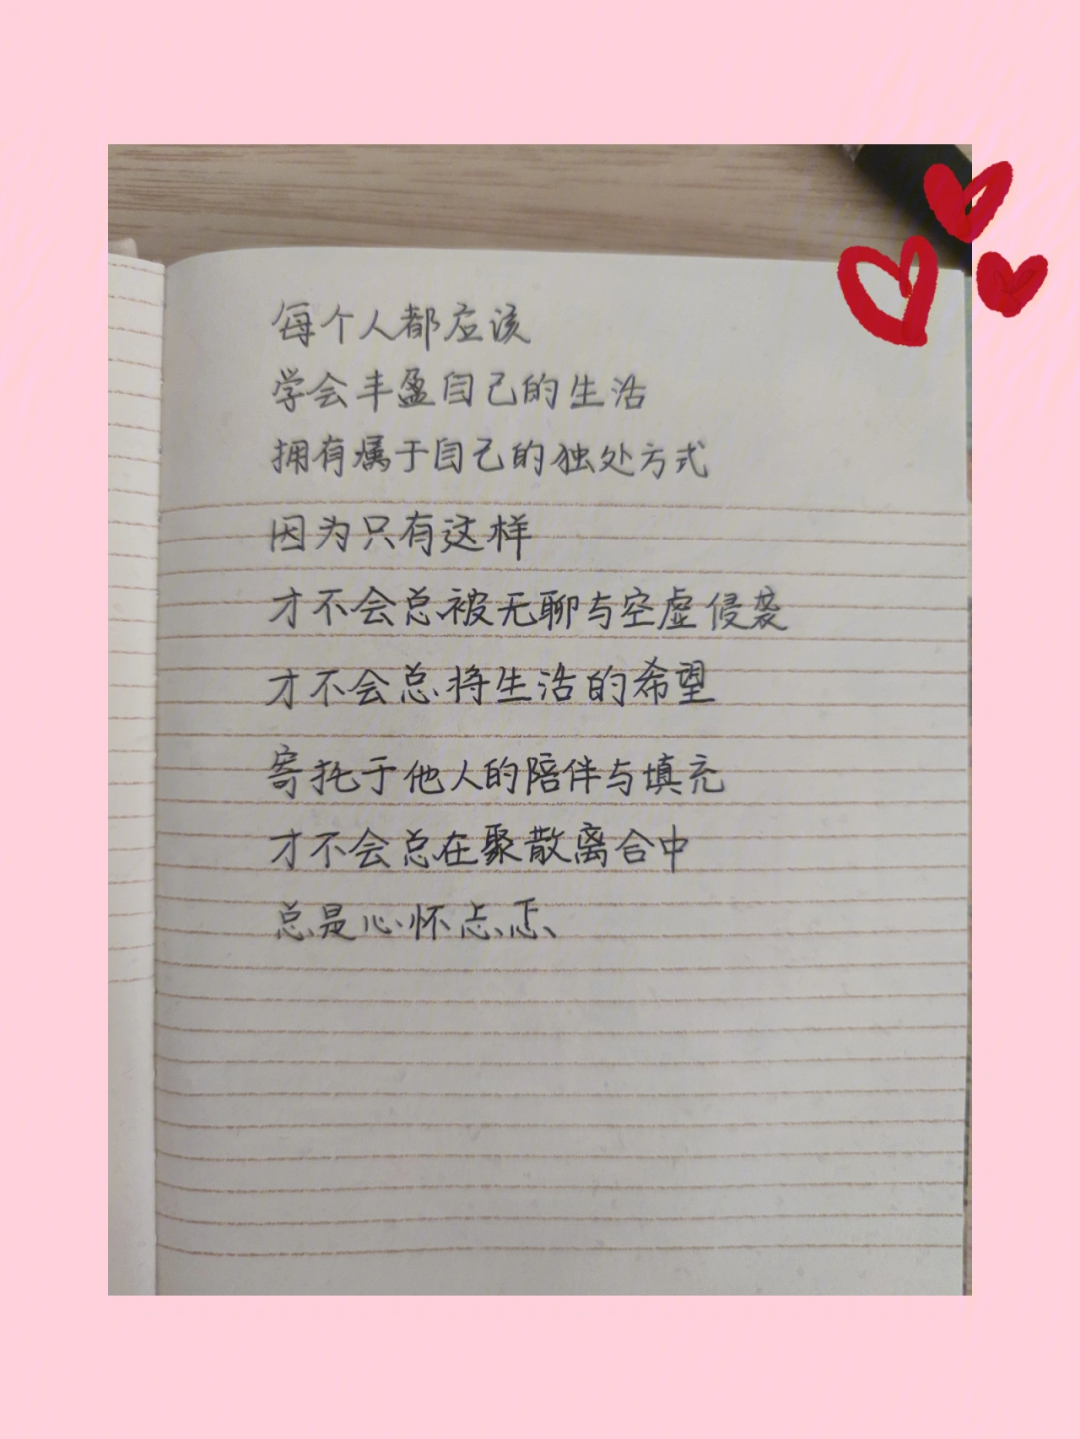 每个人都应该
学会丰盈自己的生活
拥有属于自己的独处方式
因为只有这样
才不会总被无聊与空虚侵袭
才不会总将生活的希望
寄托于他人的陪伴与填充
才不会总在聚散离合中
总是心怀忐忑、